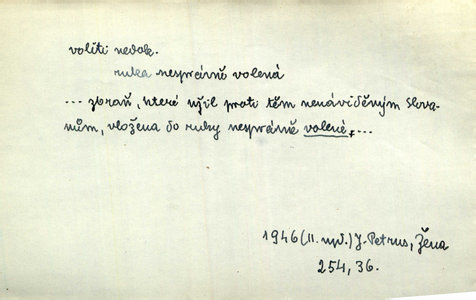 voliti nedok.
ruka nesprávně volená
... zbraň, které užil proti těm nenáviděným Slova-
nům, vložena do ruky nesprávně volené, ...
1946 (II. vyd.) J. Petrus, Žena
254, 36.